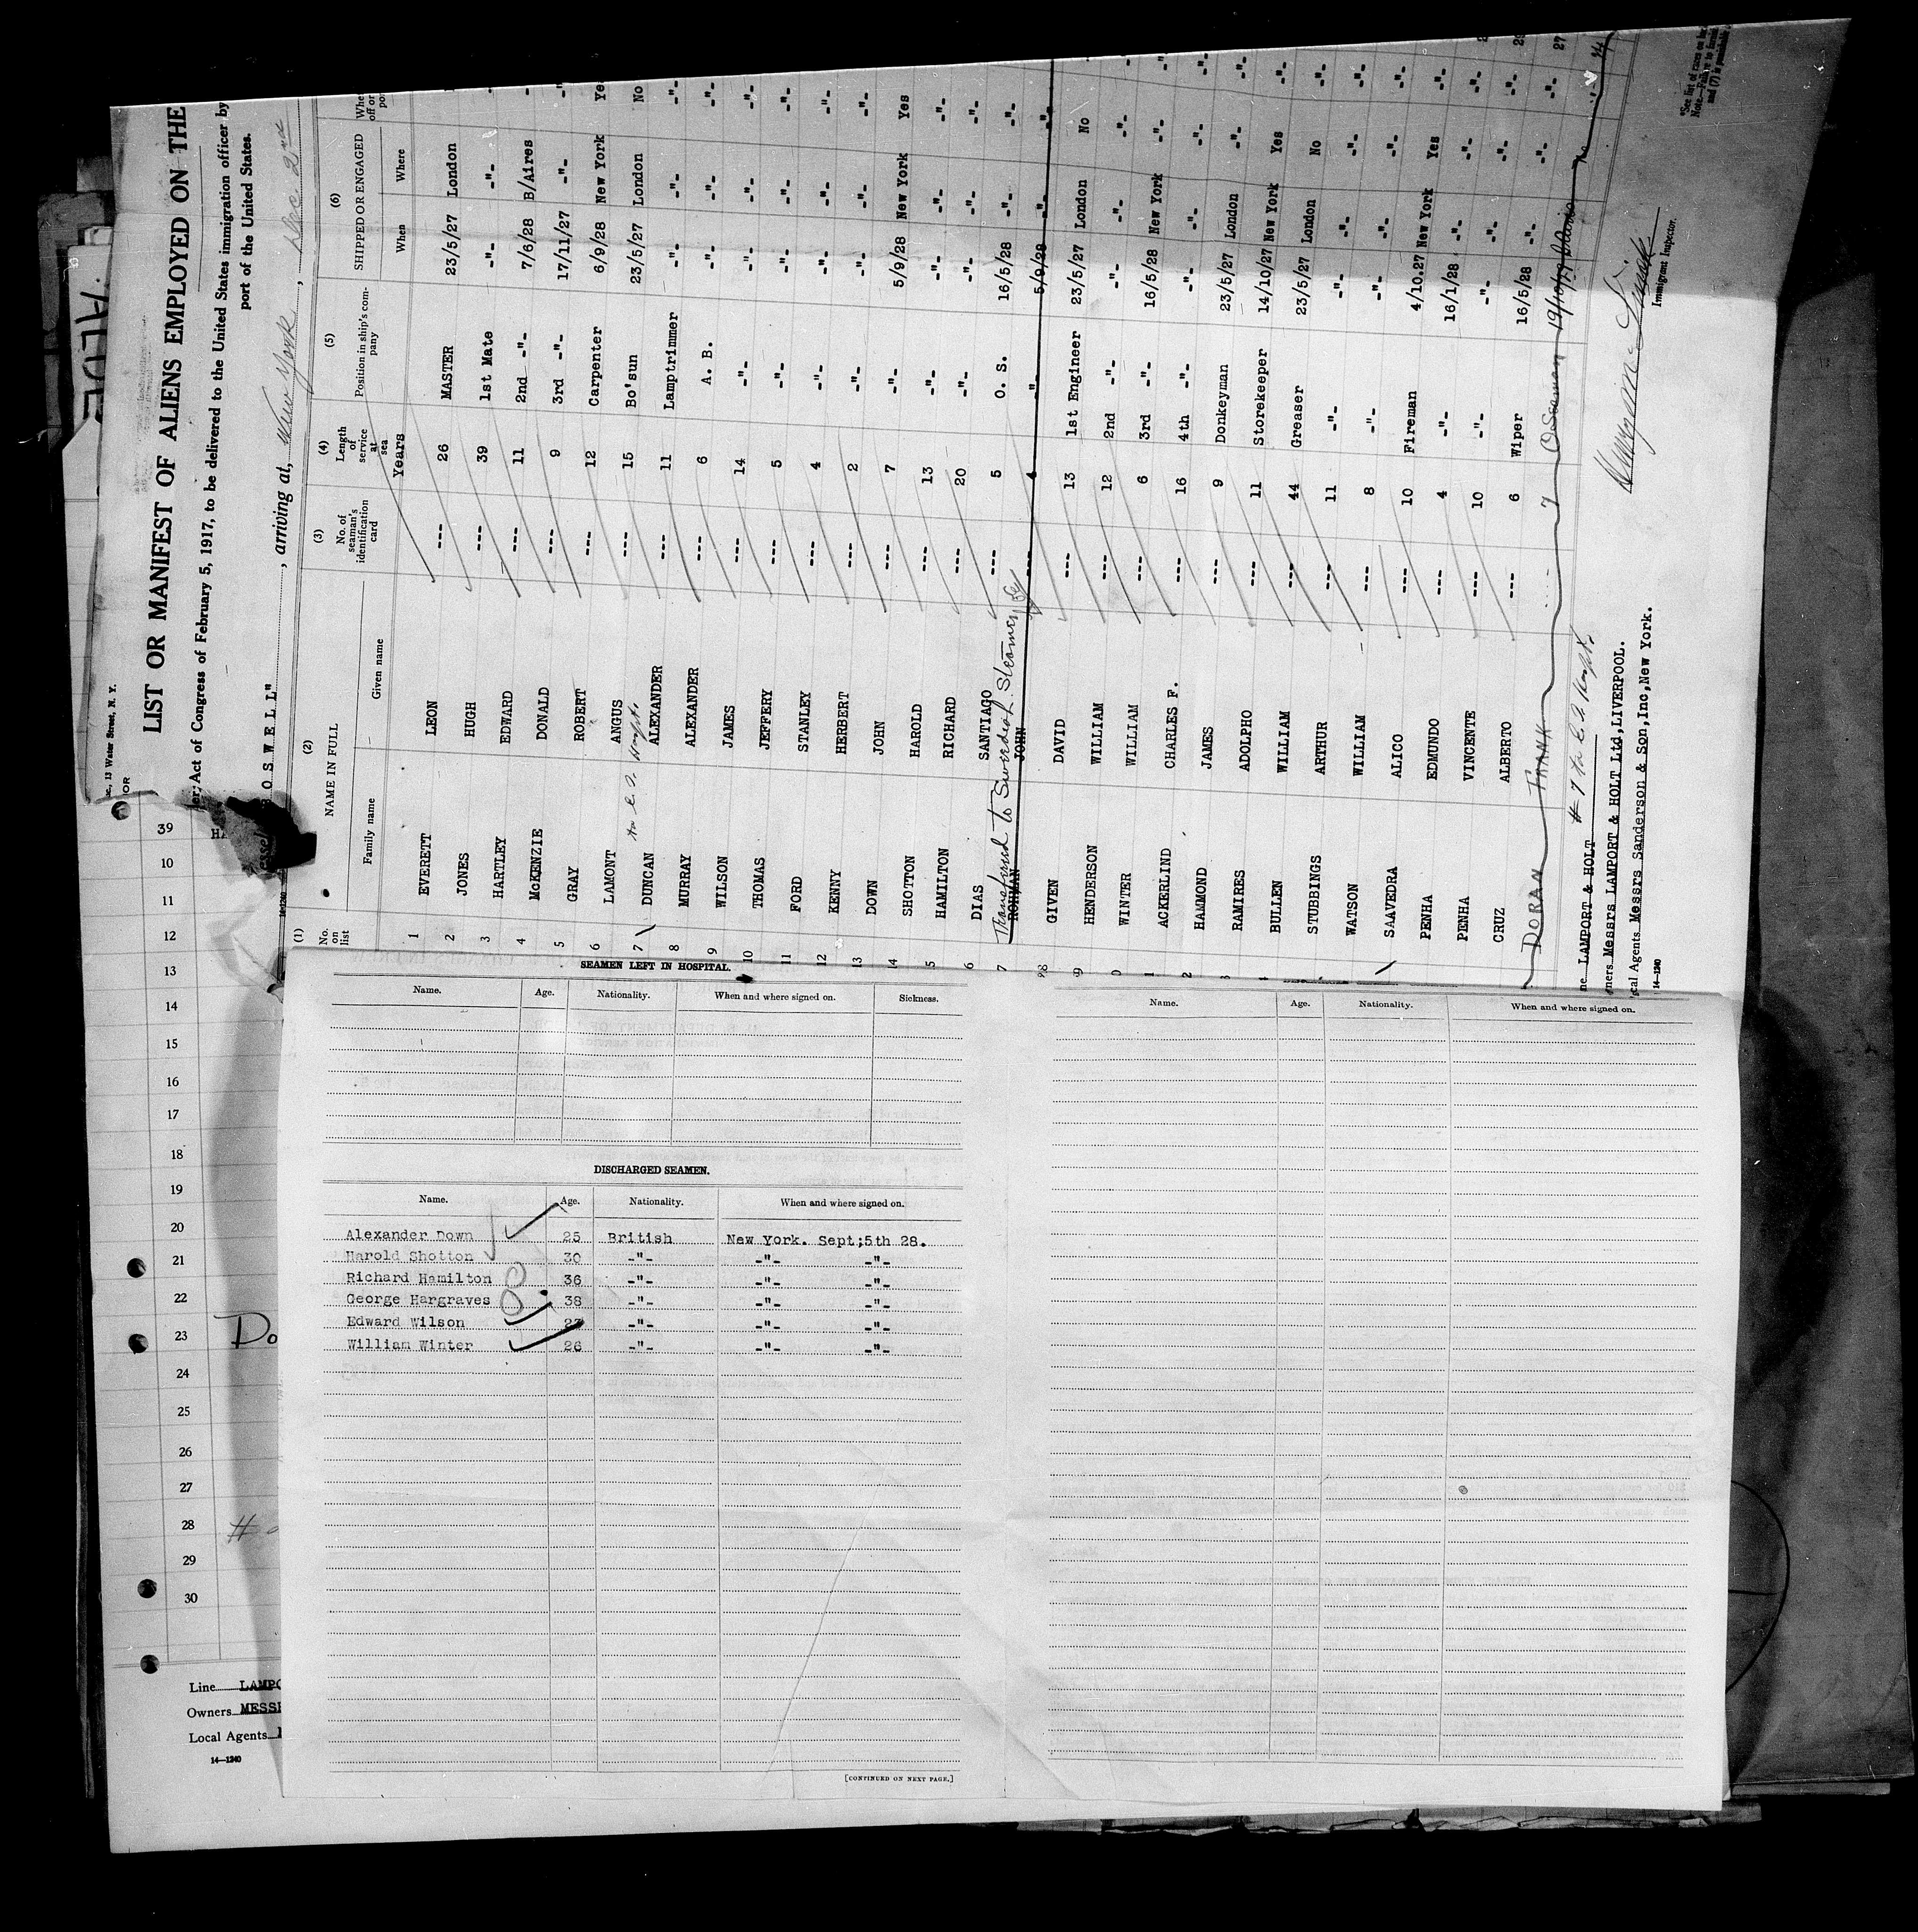 LIST OR MANIFEST OF ALIENS EMPLOYED ON THE
Act of Congress of February 5, 1917, to be delivered to the United States immigration officer by
port of the United States.
O S W E L L", arriving at, New York, Dec 2nd
(1) (2) (3) (4) (5) (6)
No. on list NAME IN FULL No. of seaman's identification card Length of service at sea Position in ship's company SHIPPED OR ENGAGED
Family name Given name Years When Where
1 EVERETT LEON --- 26 MASTER 23/5/27 London
2 JONES HUGH --- 39 1st Mate -"- -"-
3 HARTLEY EDWARD --- 11 2nd -"- 7/6/28 B/Aires
4 McKENZIE DONALD --- 9 3rd -"- 17/11/27 -"-
5 GRAY ROBERT --- 12 Carpenter 6/9/28 New York Yes
6 LAMONT ANGUS --- 15 Bo'sun 23/5/27 London No
7 DUNCAN ALEXANDER --- 11 Lamptrimmer -"- -"- -"-
8 MURRAY ALEXANDER --- 6 A. B. -"- -"- -"-
9 WILSON JAMES --- 14 -"- -"- -"- -"-
10 THOMAS JEFFERY --- 5 -"- -"- -"- -"-
11 FORD STANLEY --- 4 -"- -"- -"- -"-
12 KENNY HERBERT --- 2 -"- -"- -"- -"-
13 DOWN JOHN --- 7 -"- 5/9/28 New York Yes
14 SHOTTON HAROLD --- 13 -"- -"- -"- -"-
5 HAMILTON RICHARD --- 20 -"- -"- -"- -"-
6 DIAS SANTIAGO --- 5 O. S. 16/5/28 -"- -"-
Transferred to Steamer
7 ROHMAN JOHN --- 4 -"- 5/9/28 -"- -"-
GIVEN DAVID --- 13 1st Engineer 23/5/27 London No
9 HENDERSON WILLIAM --- 12 2nd -"- -"- -"- -"-
0 WINTER WILLIAM --- 6 3rd -"- 16/5/28 New York -"-
1 ACKERLIND CHARLES F. --- 16 4th -"- -"- -"- -"-
2 HAMMOND JAMES --- 9 Donkeyman 23/5/27 London -"-
RAMIRES ADOLPHO --- 11 Storekeeper 14/10/27 New York Yes
BULLEN WILLIAM --- 44 Greaser 23/5/27 London No
STUBBINGS ARTHUR --- 11 -"- -"- -"- -"-
WATSON WILLIAM --- 8 -"- -"- -"- -"-
SAAVEDRA ALICO --- 10 Fireman 4/10.27 New York Yes
PENHA EDMUNDO --- 4 -"- 16/1/28 -"- -"-
PENHA VINCENTE --- 10 -"- -"- -"- -"-
CRUZ ALBERTO --- 6 Wiper 16/5/28 -"- -"-
DORAN FRANK 7 O Seaman 19/10/27 B/Aires no
LAMPORT & HOLT
Messrs LAMPORT & HOLT Ltd, LIVERPOOL.
cal Agents Messrs Sanderson & Son, Inc, New York.
14—1240
Immigrant Inspector.
39
10
11
12
13
14
15
16
17
18
19
20
21
22
23
24
25
26
27
28
29
30
Do
Line LAMPO
Owners MESSR
Local Agents
14—1240
SEAMEN LEFT IN HOSPITAL.
Name. Age. Nationality. When and where signed on. Sickness.
DISCHARGED SEAMEN.
Name. Age. Nationality. When and where signed on.
Alexander Down 25 British New York. Sept;5th 28.
Harold Shotton 30 -"- -"- -"-
Richard Hamilton 36 -"- -"- -"-
George Hargraves 38 -"- -"- -"-
Edward Wilson 27 -"- -"- -"-
William Winter 26 -"- -"- -"-
[CONTINUED ON NEXT PAGE.]
Name. Age. Nationality. When and where signed on.